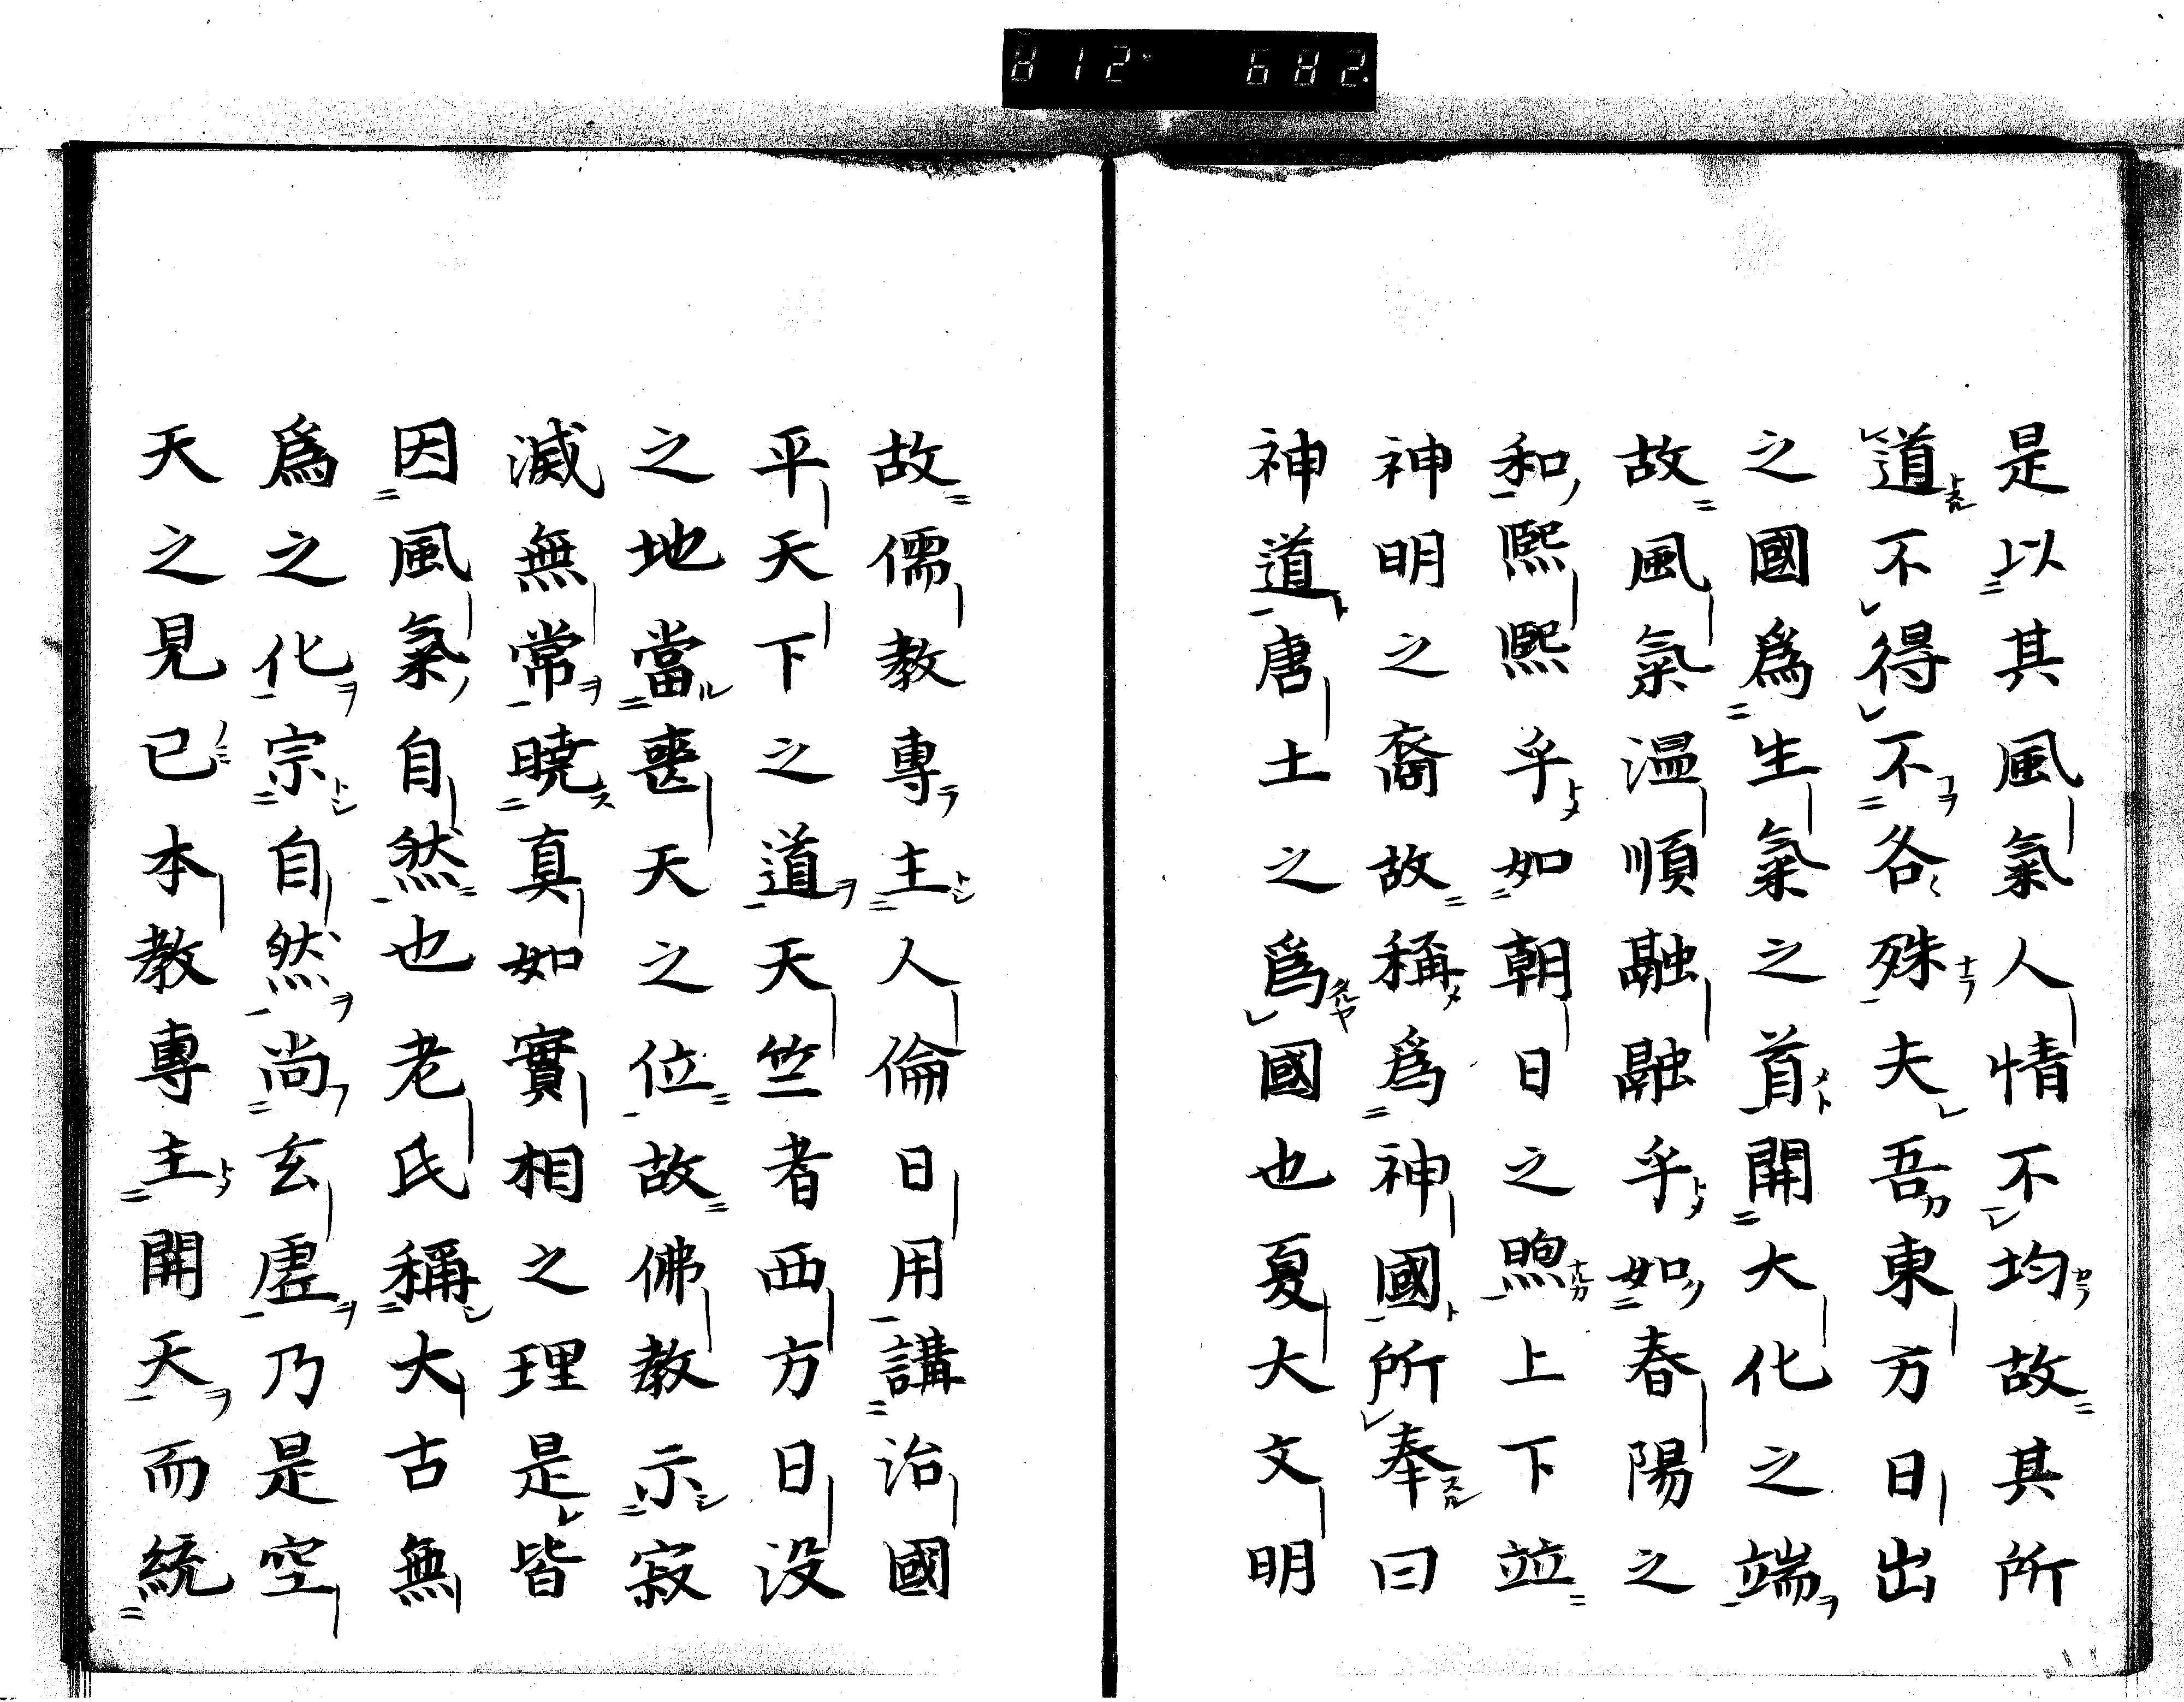 812 682
是以其風氣人情不均故其所
道不得不各殊夫吾東方日出
之國為生氣之首開大化之端
故風氣溫順融融乎如春陽之
和熙熙乎如朝日之煦上下並
神明之裔故稱為神國所奉曰
神道唐土之為國也夏大文明
故儒教專主人倫日用講治國
平天下之道天竺者西方日没
之地當喪天之位故佛教示寂
滅無常曉真如實相之理是皆
因風氣自然也老氏稱大古無
為之化宗自然尚玄虛乃是空
天之見已本教專主開天而統